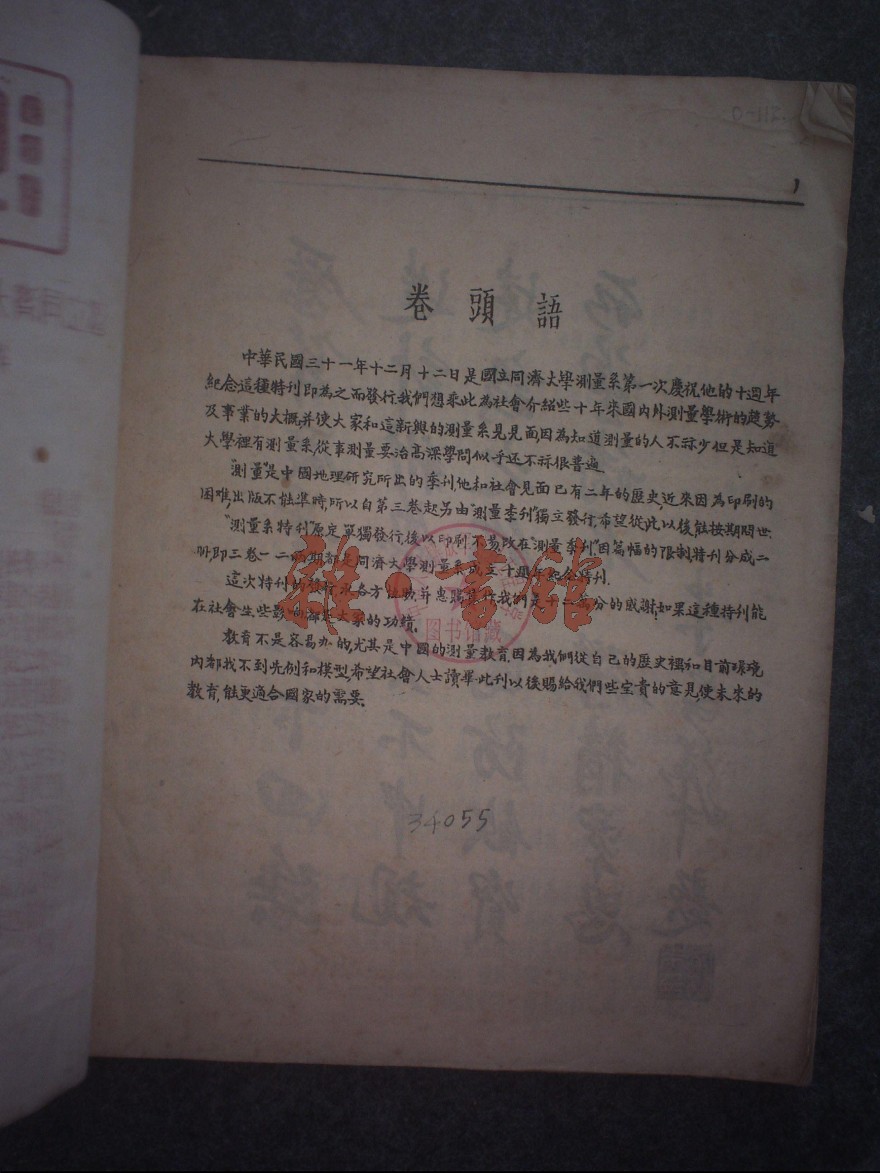 1
卷頭語
中華民國三十一年十二月十二日是國立同濟大學測量系第一次慶祝他的十週年
紀念這種特刊即為之而發行.我們想乘此為社會介紹些十年來國內外測量學術的趨勢
及事業的大概并使大家和這新興的測量系見見面因為知道測量的人不祘少但是知道
大學裡有測量系從事測量要治高深學問似乎还不祘很普遍
"測量"是中國地理研究所出的季刊他和社會見面已有二年的歷史,近來因為印刷的
困难,出版不能準時,所以自第三卷起另由"測量季刊"獨立發行,希望從此以後能按期問世.
"測量系特刊"原定單獨發行,後以印刷不易改在"測量季刊"因篇幅的限制特刊分成二
冊即三卷一二两期都是同濟大學測量系成立十週年紀念特刊.
這次特刊的發行承各方 我們是十二萬分的感謝;如果這種特刊能
在社會生些影响都是大家的功績.
教育不是容易办的,尤其是中國的測量教育,因為我們從自己的歷史裡和目前環境
內都找不到先例和模型希望社會人士讀畢此刊以後賜給我們些宝貴的意見,使未來的
教育,能更適合國家的需要.
雜·書館
图书馆藏
34055